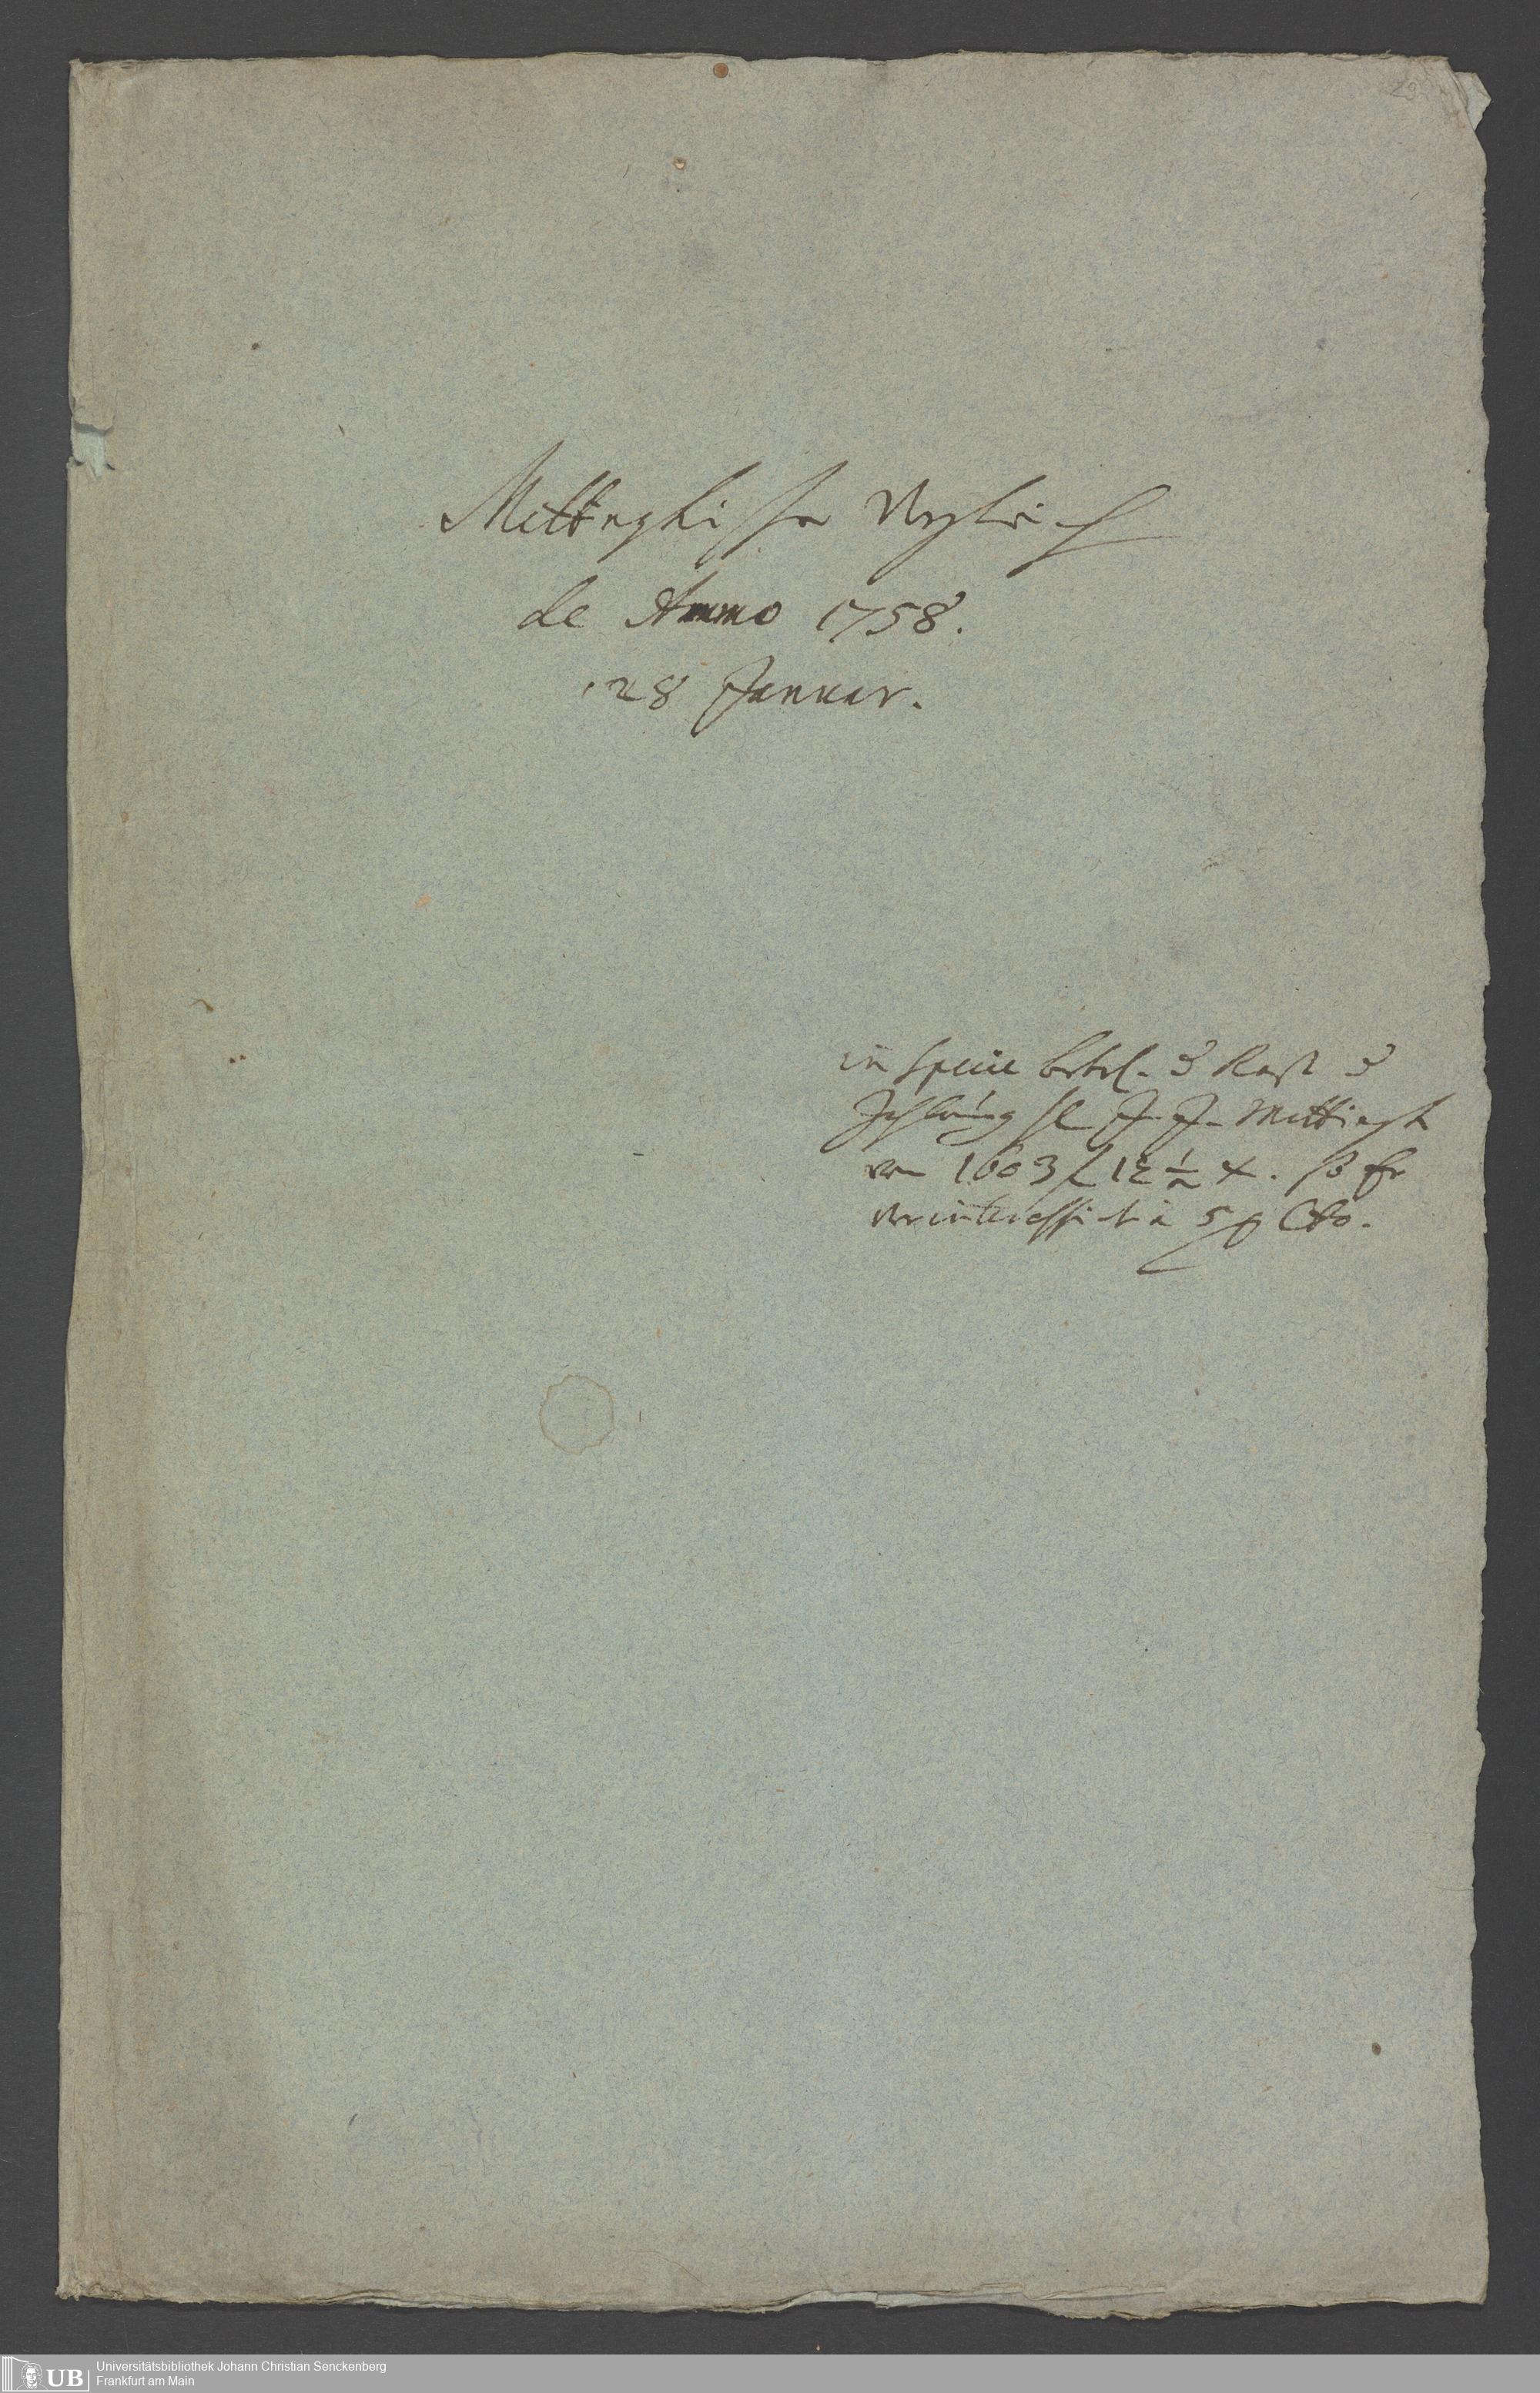 29
Mettinghische Vergleich
de Anno 1758.
28 Januar.
in specie betref. d Rest d
Zahlung H J. J. Mettingh
von 1603 f 12 1/2 x. so Er
verinteressirt à 5 p Cto.
UB
Universitätsbibliothek Johann Christian Senckenberg
Frankfurt am Main